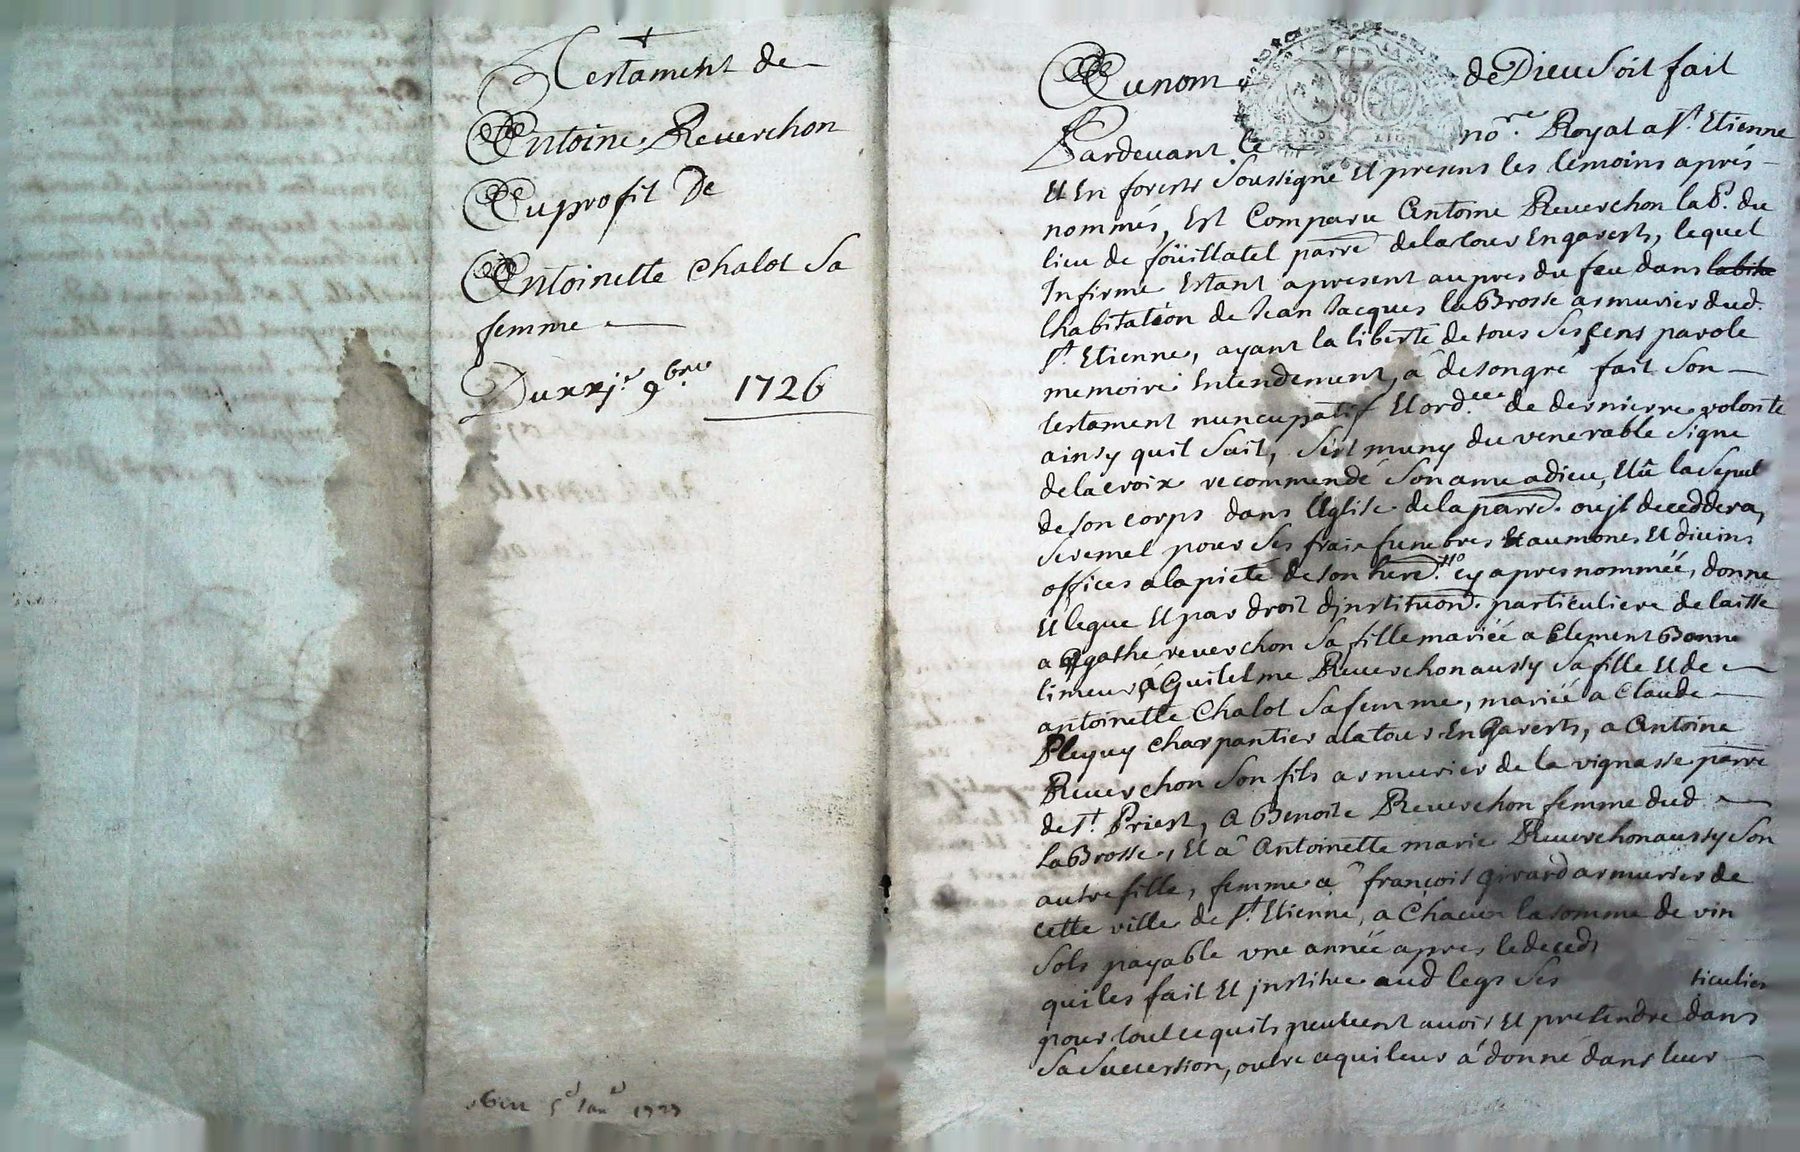 Testament de
Antoine Reverchon
Au profit De
Antoinette Chalot Sa
femme
Du xxj.e 9bre 1726
5e Janr 1727
Au nom de Dieu Soit fait
Pardevant Le nore. Royal a St. Etienne
Et En forests Soussigné Et presens les temoins aprés
nommés, Est Comparu Antoine Reverchon lab.r du
lieu de foüillatel parre de latour Engarests, lequel
Infirme Estant apresent aupres du feu dans
lhabitation de Jean Jacques laBrosse armurier dud.
St. Etienne, ayant la liberté de tous Ses sens parole
memoire Entendement, a desongré fait Son
testament nuncupatif Et ord.ce de derniere volonte
ainsy quil Sait, Sest muny du venerable Signe
delacroix recommendé Son ame adieu, Et a la Sepul
de Son corps dans l'Eglise delaparre. ou jl deceddera,
Seremet pour Ses frais funebres Et aumones Et divins
offices alapieté de Son here. cy apres nommée, donne
Et legue Et par droit djnstituon. particuliere delaisse
a Agathe reverchon Sa fille mariée a Clement Bonne
limeur, a Guilelme Reverchon aussy Sa fille Et de
antoinette Chalot Sa femme, mariée a Claude
Pleyny charpantier alatour Engarests, a Antoine
Reverchon Son fils armurier de la vignasse parre
de St. Priest, a Benoite Reverchon femme dud
LaBrosse, Et a Antoinette marie Reverchon aussy Son
autre fille, femme a françois Girard armurier de
cette ville de St. Etienne, a Chacun la somme de vin
Sols payable vne année apres le deceds
quiles fait Et jnstitue aud legs Ses ticulier
pour tout ce quils peuvent avoir Et pretendre dans
Sa Succession, outre cequileur a donné dans leur